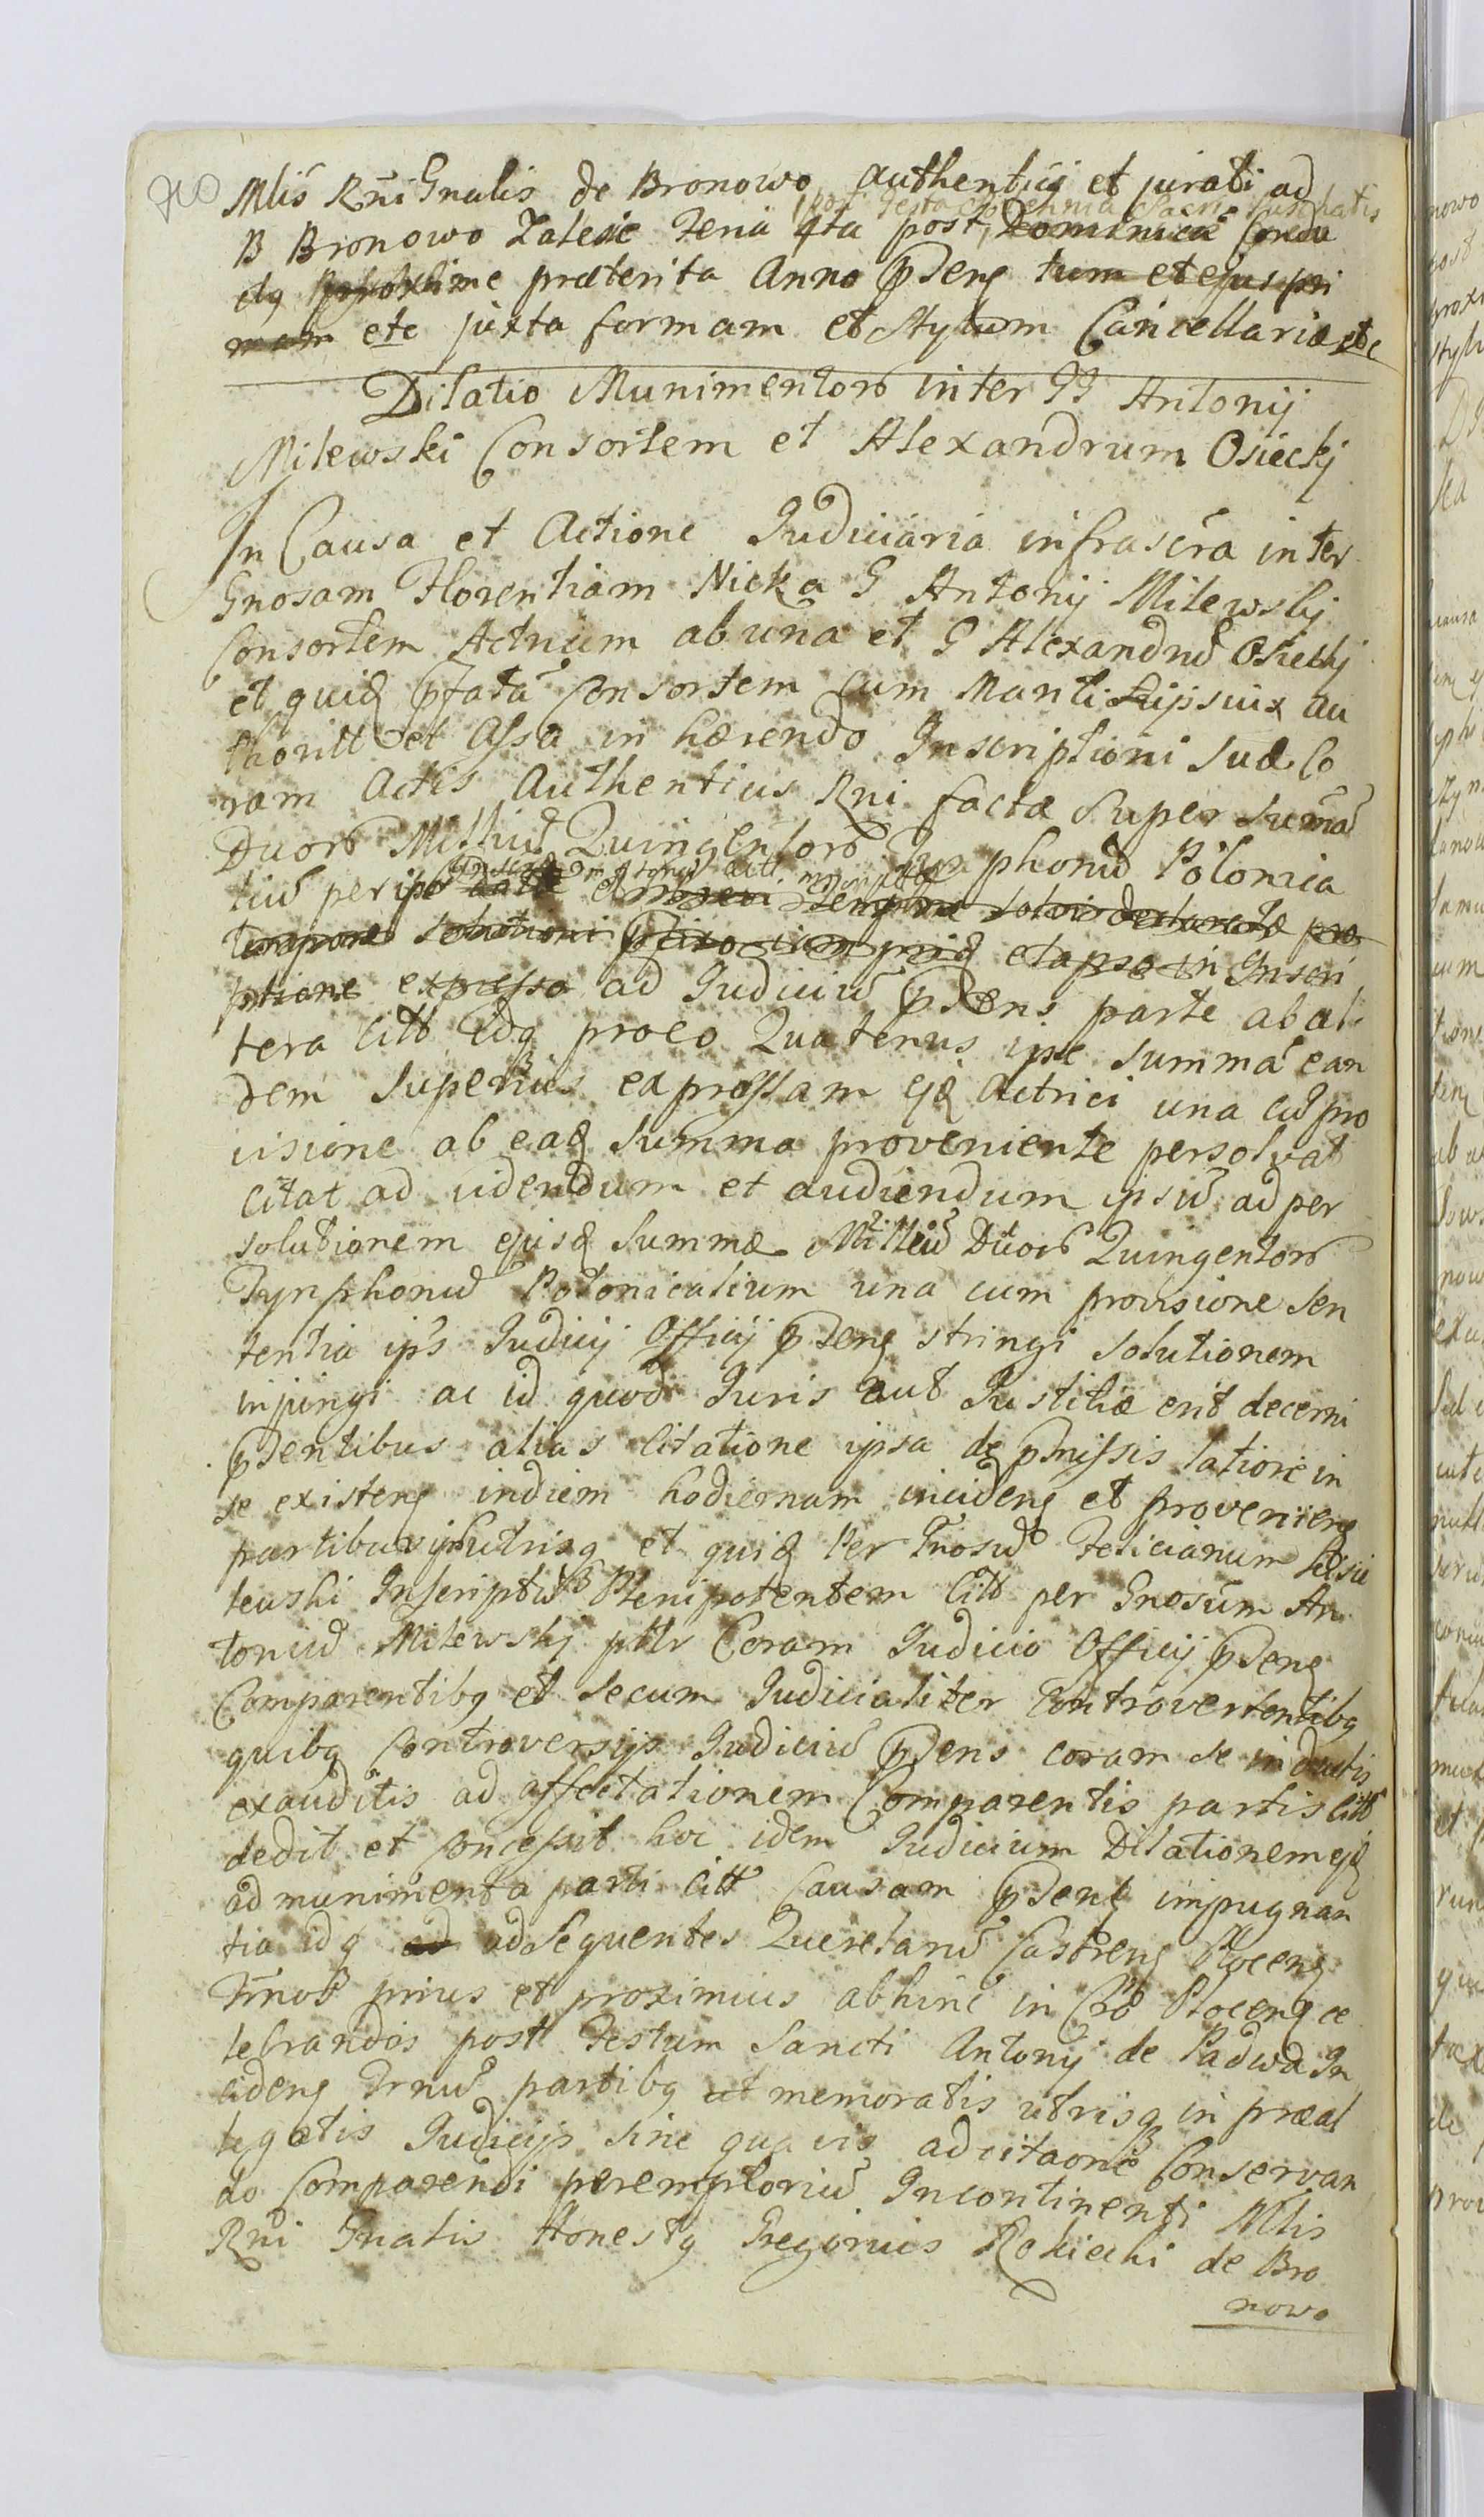 Mlis Rni Gnalis de Bronowo authentici et jurati ad
post festa
B Bronowo Zalesie Feria 4ta post Dominica Condu
ctq proxime præterita Anno Psenq tum et ejus pri
mam etc juxta formam et stylum Cancellariæ etc
Dilatio Munimentorb inter GG Antonij
Milewski Consortem et Alexandrum Osieckj
In Causa et Actione Judiciaria infrascra inter
Gnosam Florentiam Nicka G Antonij Milewskj
Consortem Actricem ab una et G Alexandrū Osieckj
et quidq Pfatā Consortem cum Mariti sui ipsius au
thoritt et Assa in hærendo Inscriptioni suæ Co
ram Actis Authenticis Rni factæ super Sumā
Duorb Milliū Quingentorb Tynphonū Polonica
liū per ipsū
tempore solutioni elapso in Inscri
ptione expresso ad Judiciū Psens parte ab al
tera citt idq proeo Quatenus ipse summā ean
dem superius expressam ejq Actrici una cū pro
visione ab eadq summa proveniente persolvat
citat ad videndum et audiendum ipsū ad per
solutionem ejusdq summæ Milliū Duorb Quingentorb
Tynphonū Polonicalium una cum provisione sen
tentia ips Judicij Officij Psenq stringi solutionem
injungi ac id quod Juris aut Justitiæ erit decerni
Psentibus alias Citatione ipsa de Pmissis latiore in
se existenq in diem hodiernam incidenq et provenienq
partibus ipsis utrisq et quidq Per Gnosū Felicianum
Inscriptū Plenipotentem citt per Gnosum An
toniū Milewskj pttr Coram Judicio Officij Psenq
Comparentibq et secum Judicialiter Controvertentibq
quibq Controversijs Judiciū Psens coram se inductis
exauditis ad affectationem Comparentis partis citt
dedit et concessit hoc idem Judicium Dilationem ejq
ad munimenta parti citt causam Psenq impugnan
tia idq ad ad sequentes Querelarū Castrenq Plocenq
Trmob prius et proximius abhinc in Cro Plocenq ce
lebrandos post Festum Sancti Antonij de Padwa In
cidenq Trnū partibq ut memoratis utrisq in præal
legatis Judicijs sine quavis adcitaone Conservan
do Comparendi peremptoriū Incontinenti Mlis
Rni Gnalis Honestq Gregorius Rokicki de Bro
nowo